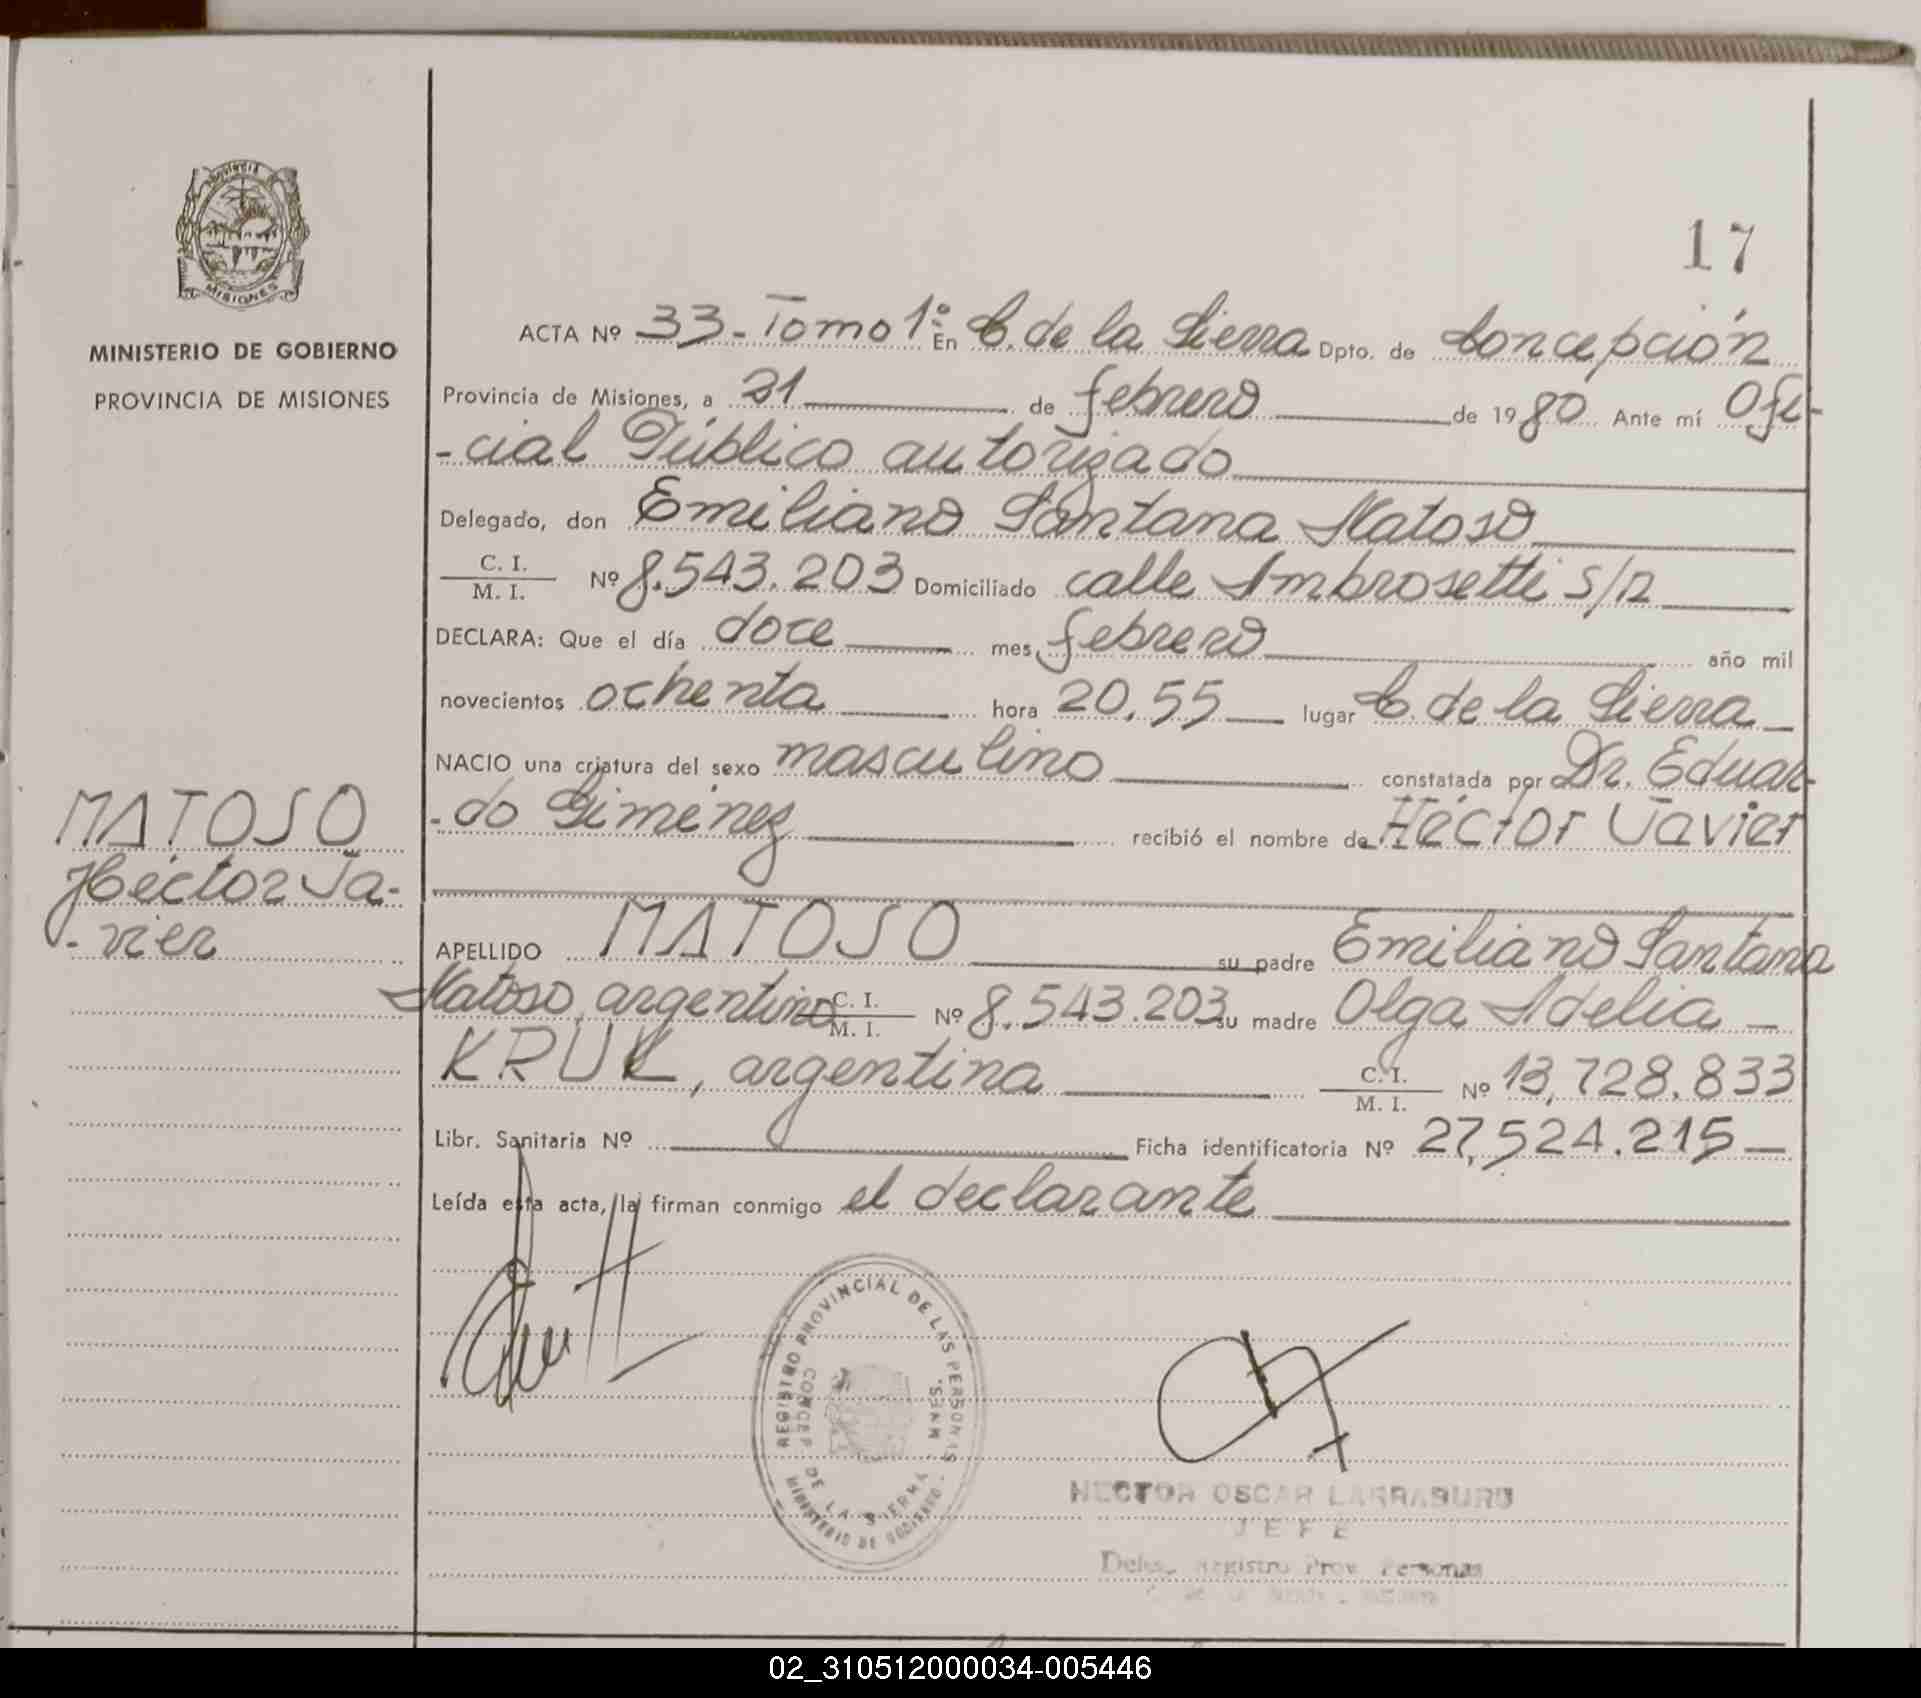 17
MINISTERIO DE GOBIERNO
PROVINCIA DE MISIONES
MISIONES
MATOSO
Héctor Ja-
-vier
ACTA Nº 33-Tomo 1º En C. de la Sierra Dpto. de Concepción
Provincia de Misiones, a 21 de febrero de 1980. Ante mí Ofi-
-cial Público autorizado
Delegado, don Emiliano Santana Matoso
C. I. / M. I. Nº 8.543.203 Domiciliado calle Ambrosetti s/n
DECLARA: Que el día doce mes febrero año mil
novecientos ochenta hora 20,55 lugar C. de la Sierra
NACIO una criatura del sexo masculino constatada por Dr. Eduar-
-do Giménez recibió el nombre de Héctor Javier
APELLIDO MATOSO su padre Emiliano Santana
Matoso, argentino C. I. / M. I. Nº 8.543.203 su madre Olga Adelia
KRUK, argentina C. I. / M. I. Nº 13,728.833
Libr. Sanitaria Nº Ficha identificatoria Nº 27,524.215
Leída esta acta, la firman conmigo el declarante
REGISTRO PROVINCIAL DE LAS PERSONAS
CONCEP. DE LA SIERRA MNES.
MINISTERIO DE GOBIERNO
HECTOR OSCAR LARRABURU
JEFE
Deleg. Registro Prov. Personas
02_310512000034-005446